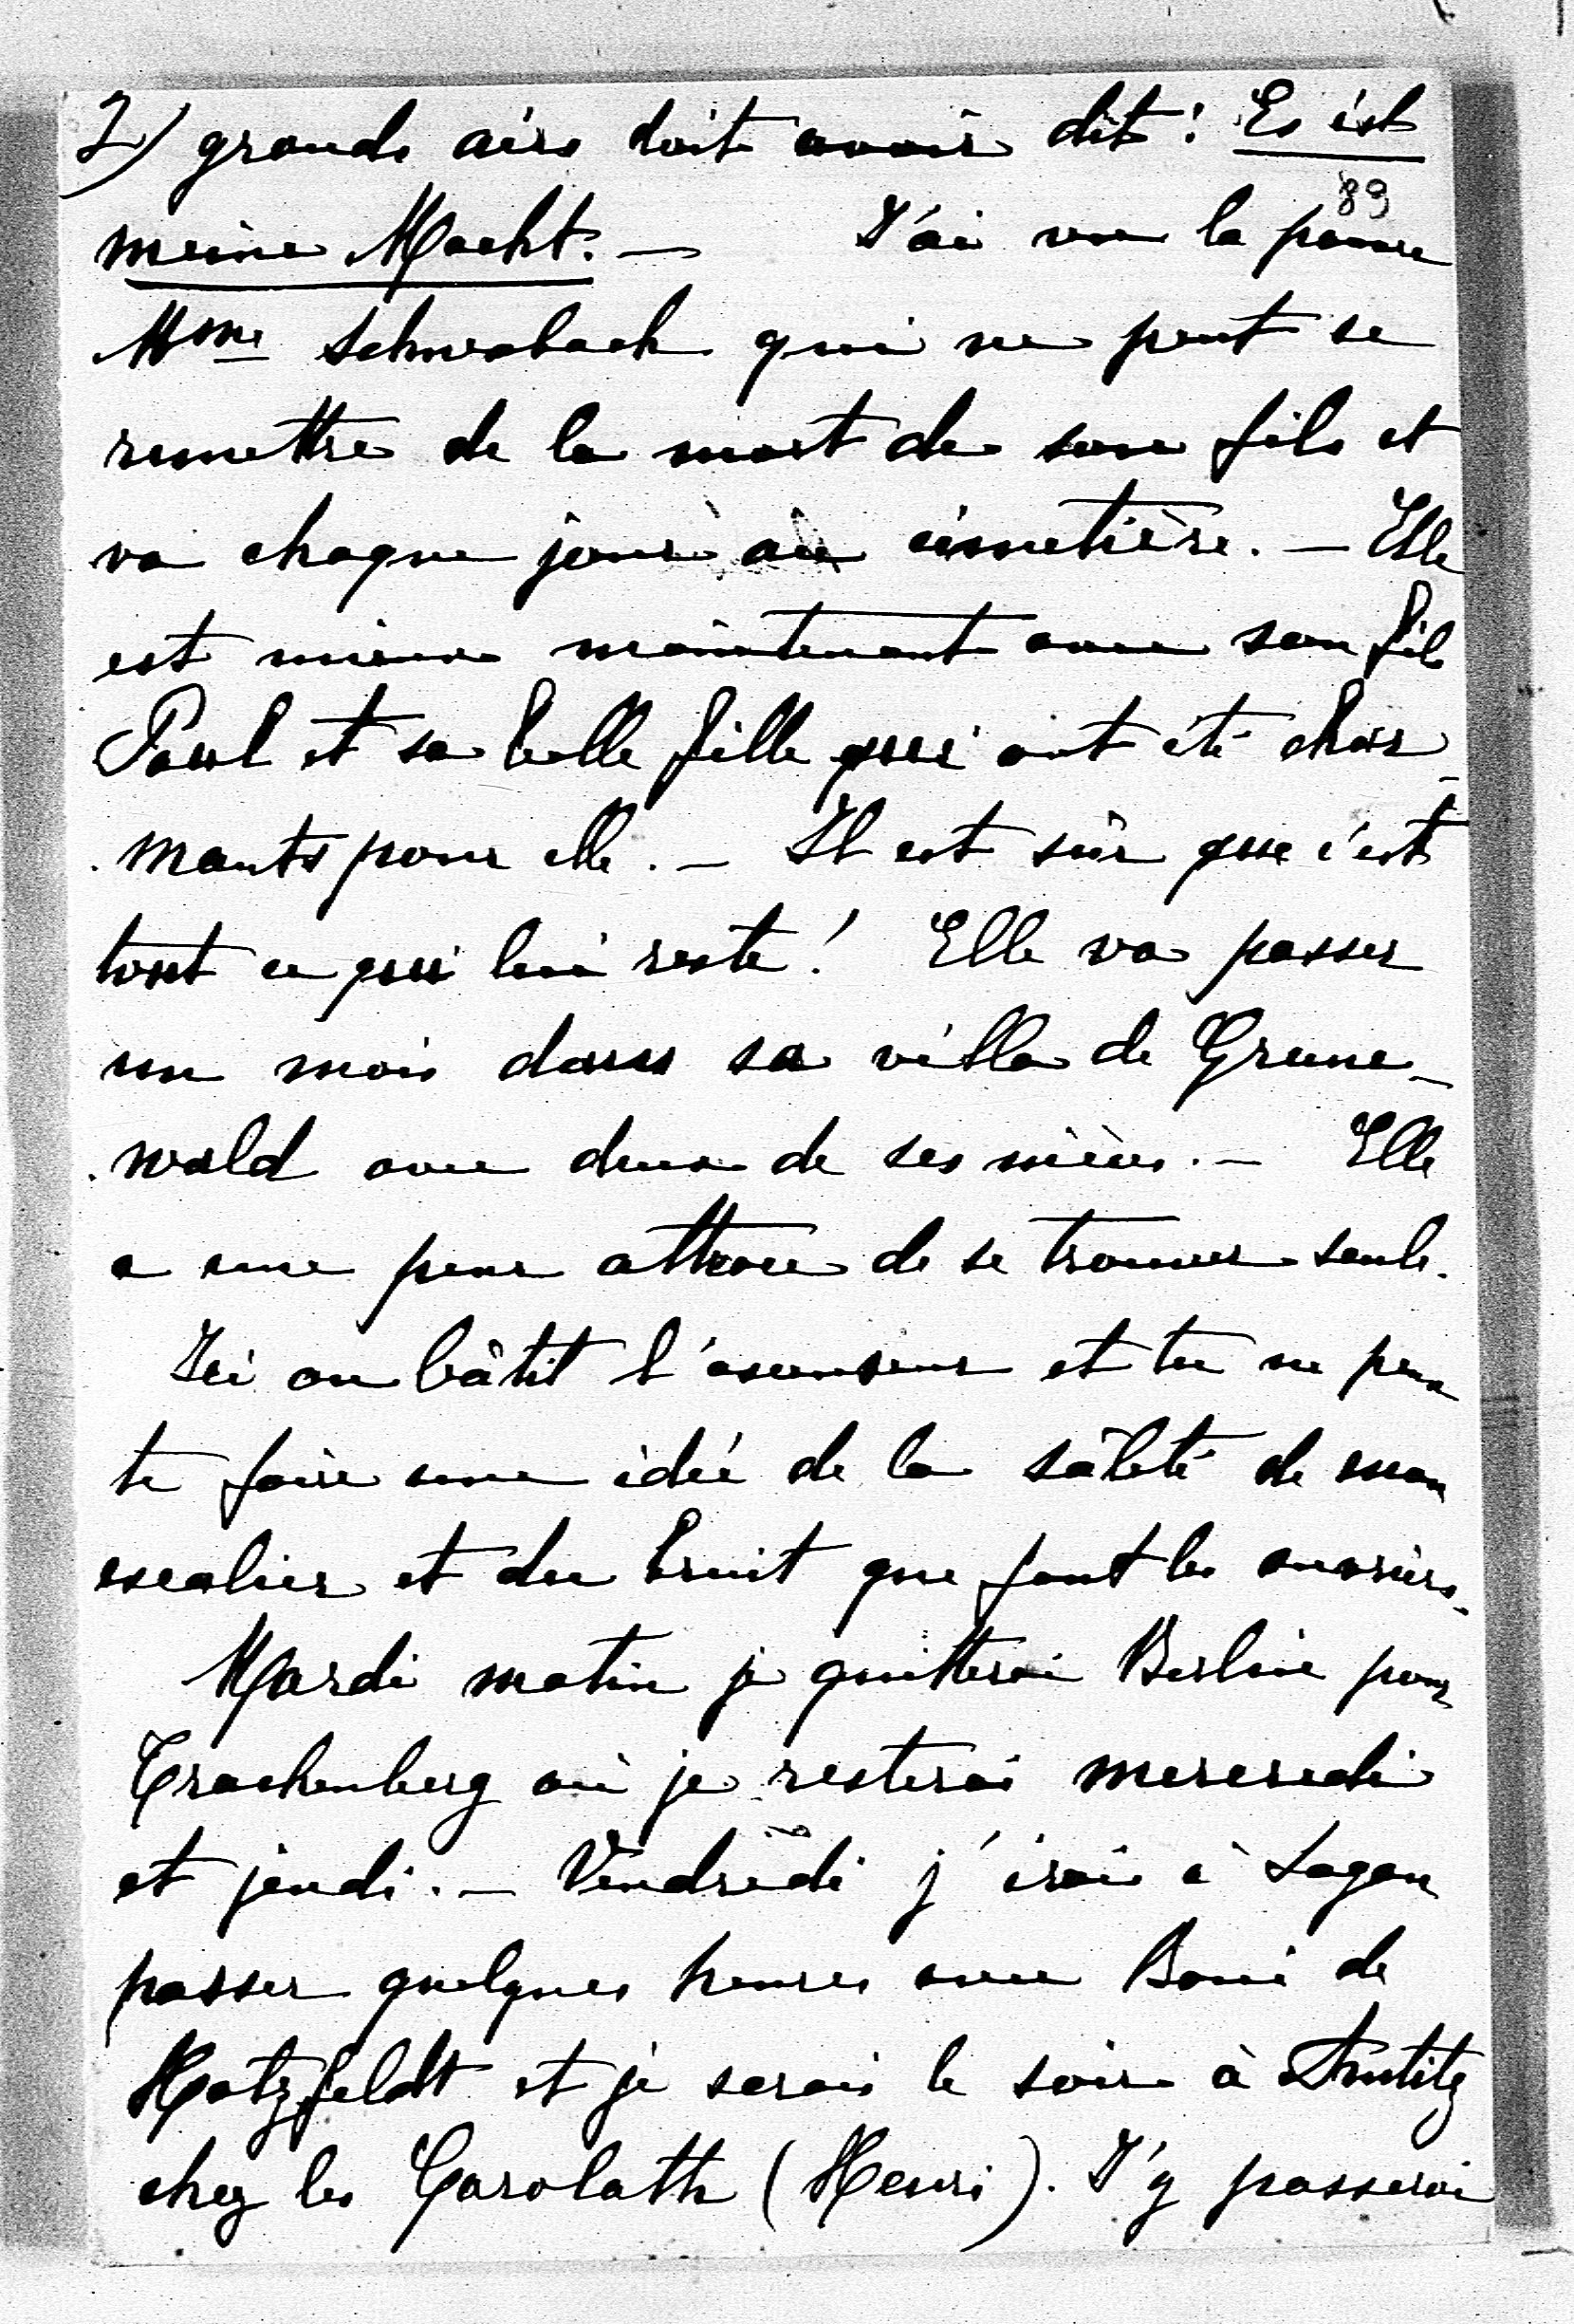 2) grands airs doit avoir dit: Es ist
89
meine Macht. — J'ai vu la pauvre
Mme Schwabach qui ne peut se
remettre de la mort de son fils et
va chaque jour au cimetière. — Elle
est mieux maintenant avec son fils
Paul et sa belle fille qui ont été char-
mants pour elle. — Il est sûr que c'est
tout ce qui lui reste! Elle va passer
un mois dans sa villa de Grune-
wald avec deux de ses nièces. — Elle
a une peur atroce de se trouver seule.
Ici on bâtit l'ascenseur et tu ne peux
te faire une idée de la sâleté de mon
escalier et du bruit que font les ouvriers.
Mardi matin je quitterai Berlin pour
Trachenberg où je resterai mercredi
et jeudi. — Vendredi j'irai à Sagan
passer quelques heures avec Boni de
Hatzfeldt et je serai le soir à
chez les Carolath (Henri). J'y passerai